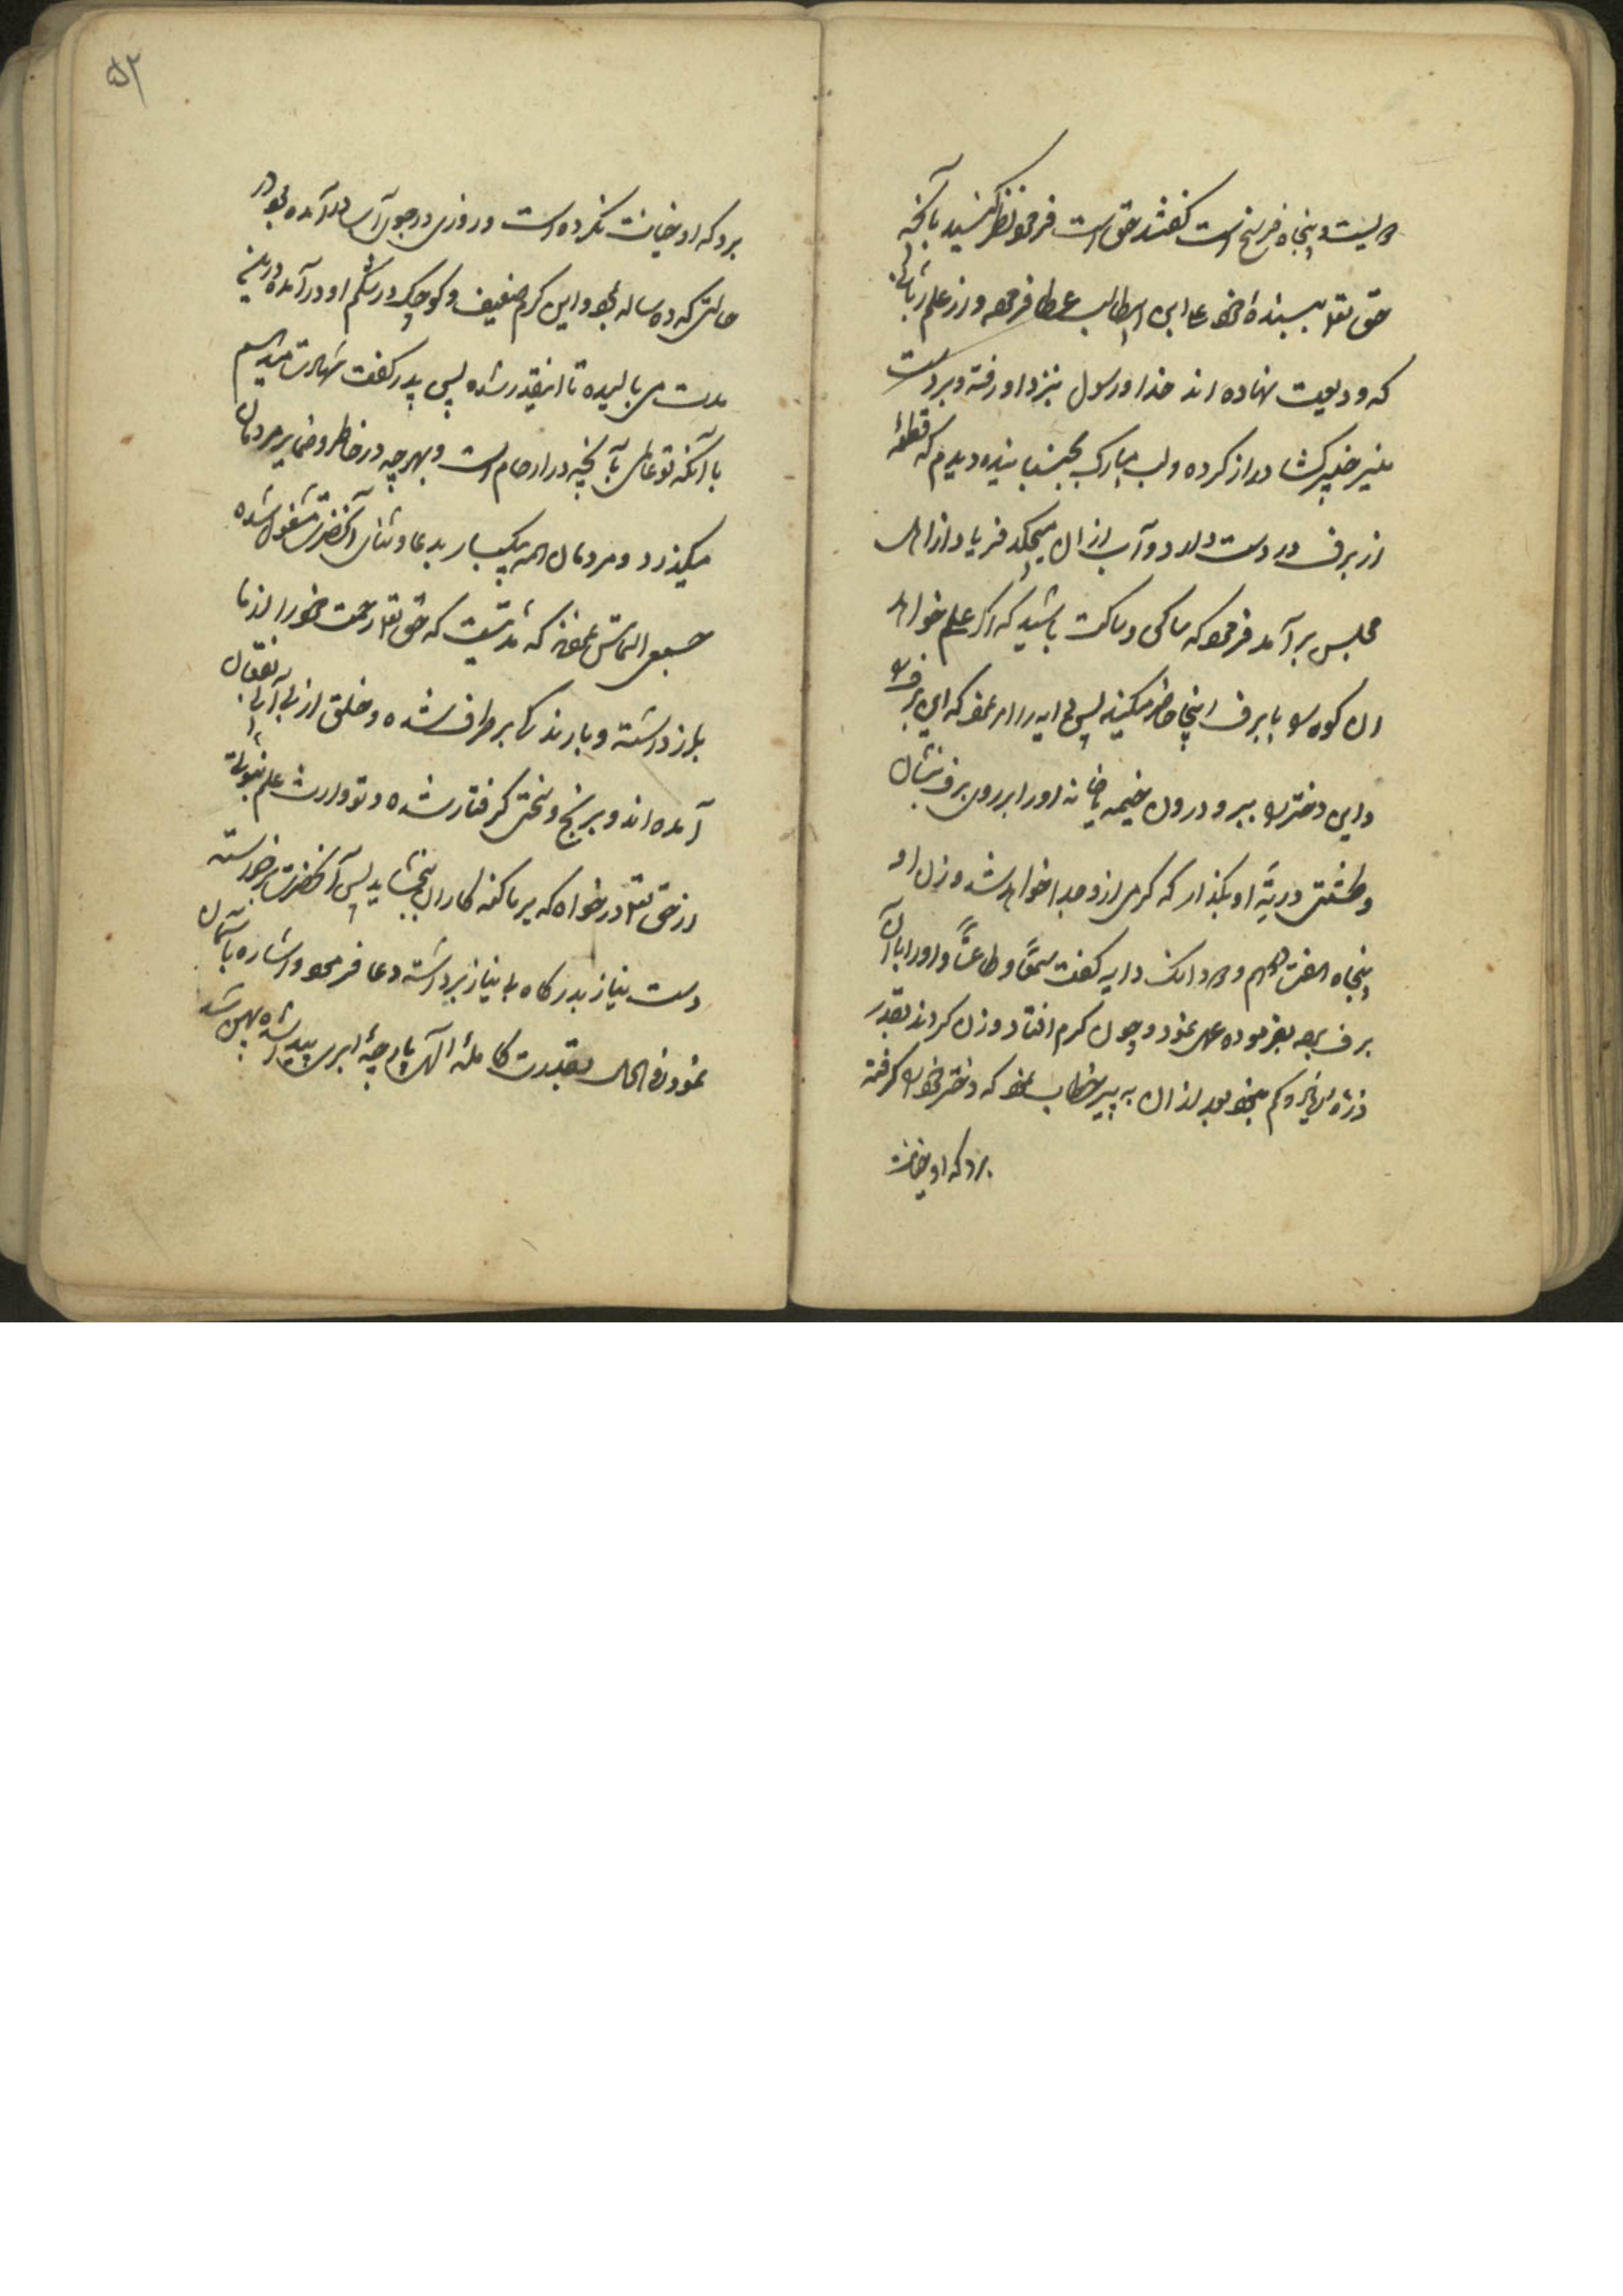 دویست و پنجاه فرسخ است گفتند حق است فرمود نظر کنید بآنچه
حق تعا ببنده خود علی ابن ابیطالب عطا فرموده و از علم ربانی
که ودیعت نهاده اند خدا و رسول بنزد او رفته و بر دست
خیبر کشا دراز کرده و لب مبارک بجنبانیده دیدم که قطعهٔ
از برف در دست دارد و آب از ان میچکد فریاد از اهل
مجلس بر آمد فرمود که ساکن و ساکت باشید که اگر علی خواهد
ان کوه را با برف اینجا حاضر میکند پس دایه را امر نمود که این برف را
و این دختر را ببر و درون خیمه یا خانه او را بر روی برف بنشان
و طشتی در ته او بگذار که کرمی ازو جدا خواهد شد وزن او
پنجاه هفت درهم و دو دانک دایه گفت سمعًا و طاعتًا و او را با آن
برف برده بفرموده عمل نمود و چون کرم افتاد وزن کردند بقدر
ذره زیاده و کم نبود بعد از ان به پیر خطاب نمود که دختر خود را گرفته
برد که او خیانت
۵۲
برد که او خیانت نکرده است و روزی در جوی آب در آمده بود در
حالتی که ده ساله بود و این کرم ضعیف و کوچک در شکم او در آمده در این
مدت می بالیده تا اینقدر شده پس پدر گفت شهادت میدهم
با آنکه تو عالمی بآنچه در ارحام است و بهر چه در خاطر و ضمایر مردمان
میگذرد و مردمان همه بیکبار بدعا و ثنای آنحضرت مشغول شده
جمیع التماس نمودند که مدتیست که حق تعا رحمت خود را از ما
باز داشته و بارندگی بر طرف شده و خلق از بی آبی بفغان
آمده اند و برنج و سختی گرفتار شده و تو وارث علم نبوتی
از حق تعا در خواه که بر ما گنه کاران بخشاید پس آنحضرت برخواسته
دست نیاز بدرگاه بی نیاز برداشته دعا فرمود و اشاره بآسمان
نمود فی الحال بقدرت کاملهٔ الهی پارچهٔ ابری پیدا شده پهن شد